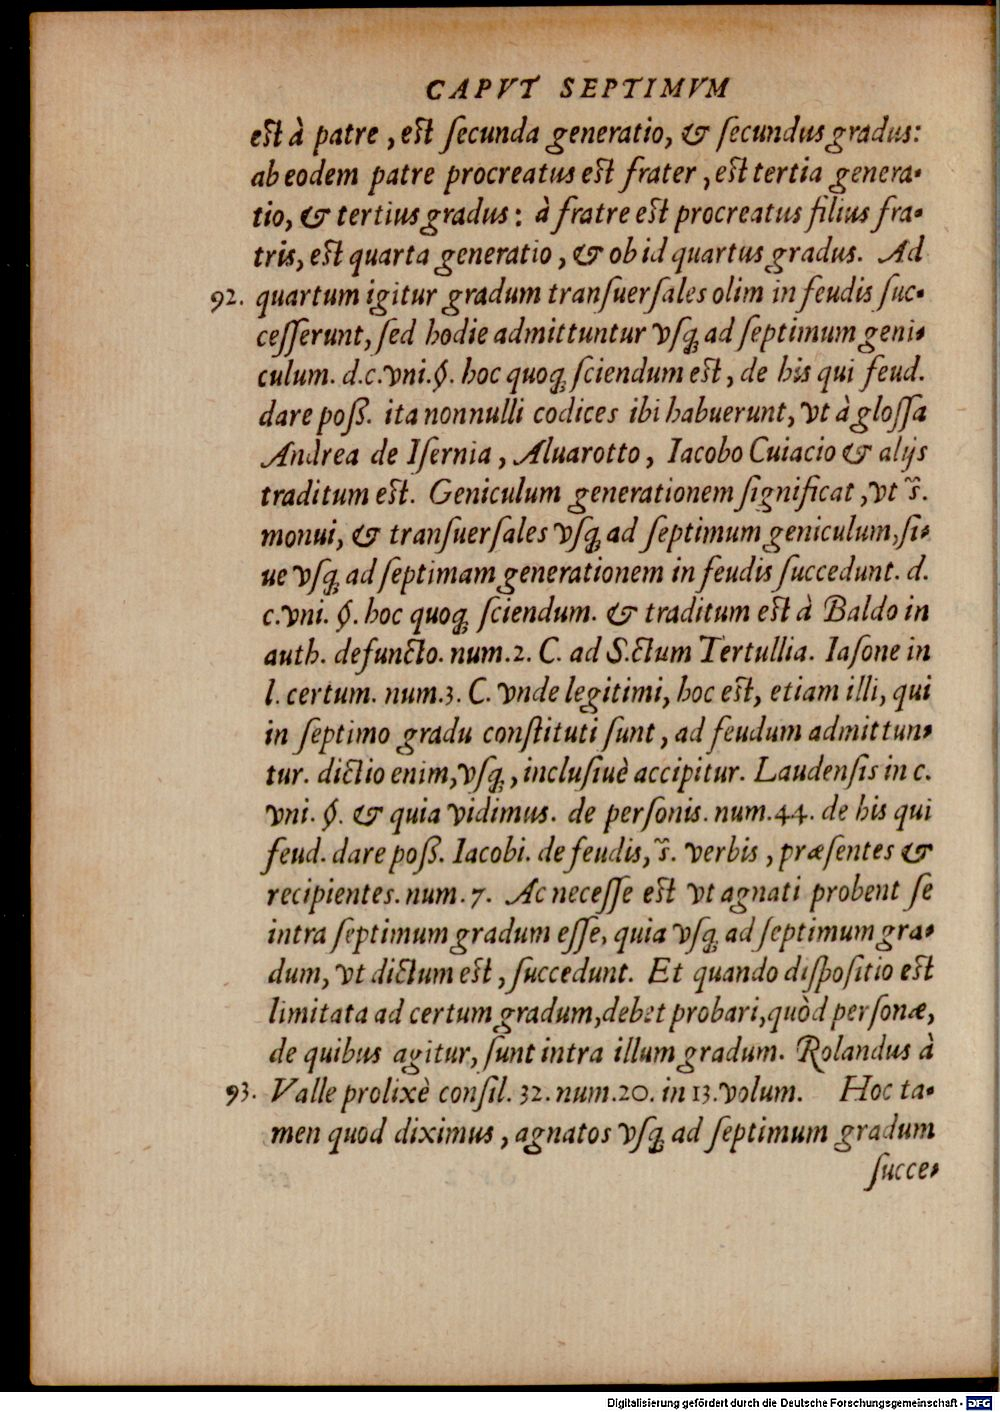 CAPVT SEPTIMVM
est à patre , est ſecunda generatio, & ſecundus gradus:
ab eodem patre procreatus est frater , est tertia genera-
tio, & tertius gradus : à fratre est procreatus filius fra-
tris, est quarta generatio , & ob id quartus gradus. Ad
92. quartum igitur gradum tranſuerſales olim in feudis ſuc-
ceſſerunt, ſed hodie admittuntur vſq; ad ſeptimum geni-
culum. d.c.vni.§. hoc quoq; ſciendum est , de his qui feud.
dare poß. ita nonnulli codices ibi habuerunt, vt à gloſſa
Andrea de Iſernia , Aluarotto , Iacobo Cuiacio & alijs
traditum est. Geniculum generationem ſignificat , vt s̃.
monui, & tranſuerſales vſq; ad ſeptimum geniculum, ſi-
ue vſq; ad ſeptimam generationem in feudis ſuccedunt. d.
c.vni. §. hoc quoq; ſciendum. & traditum est à Baldo in
auth. defuncto. num.2. C. ad S.ctum Tertullia. Iaſone in
l. certum. num.3. C. vnde legitimi, hoc est, etiam illi, qui
in ſeptimo gradu conſtituti ſunt , ad feudum admittun-
tur. dictio enim, vſq; , incluſiuè accipitur. Laudenſis in c.
vni. §. & quia vidimus. de perſonis. num.44. de his qui
feud. dare poß. Iacobi. de feudis, s̃. verbis , præſentes &
recipientes. num. 7. Ac neceſſe est vt agnati probent ſe
intra ſeptimum gradum eſſe, quia vſq; ad ſeptimum gra-
dum, vt dictum est , ſuccedunt. Et quando diſpoſitio est
limitata ad certum gradum, debet probari, quòd perſonæ,
de quibus agitur, ſunt intra illum gradum. Rolandus à
93. Valle prolixè conſil. 32. num.20. in 13. volum. Hoc ta-
men quod diximus , agnatos vſq; ad ſeptimum gradum
ſucce-
Digitalisierung gefördert durch die Deutsche Forschungsgemeinschaft - DFG